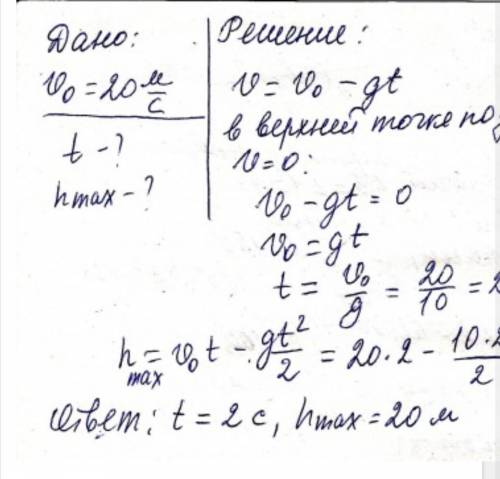 Дано:
v₀ = 20 м/с
t - ?
hmax - ?
Решение:
v = v₀ - gt
в верхней точке
v = 0:
v₀ - gt = 0
v₀ = gt
t = v₀/g = 20/10 =
h max = v₀t - gt²/2 = 20·2 - 10·2/2
Ответ: t = 2 с, hmax = 20 м